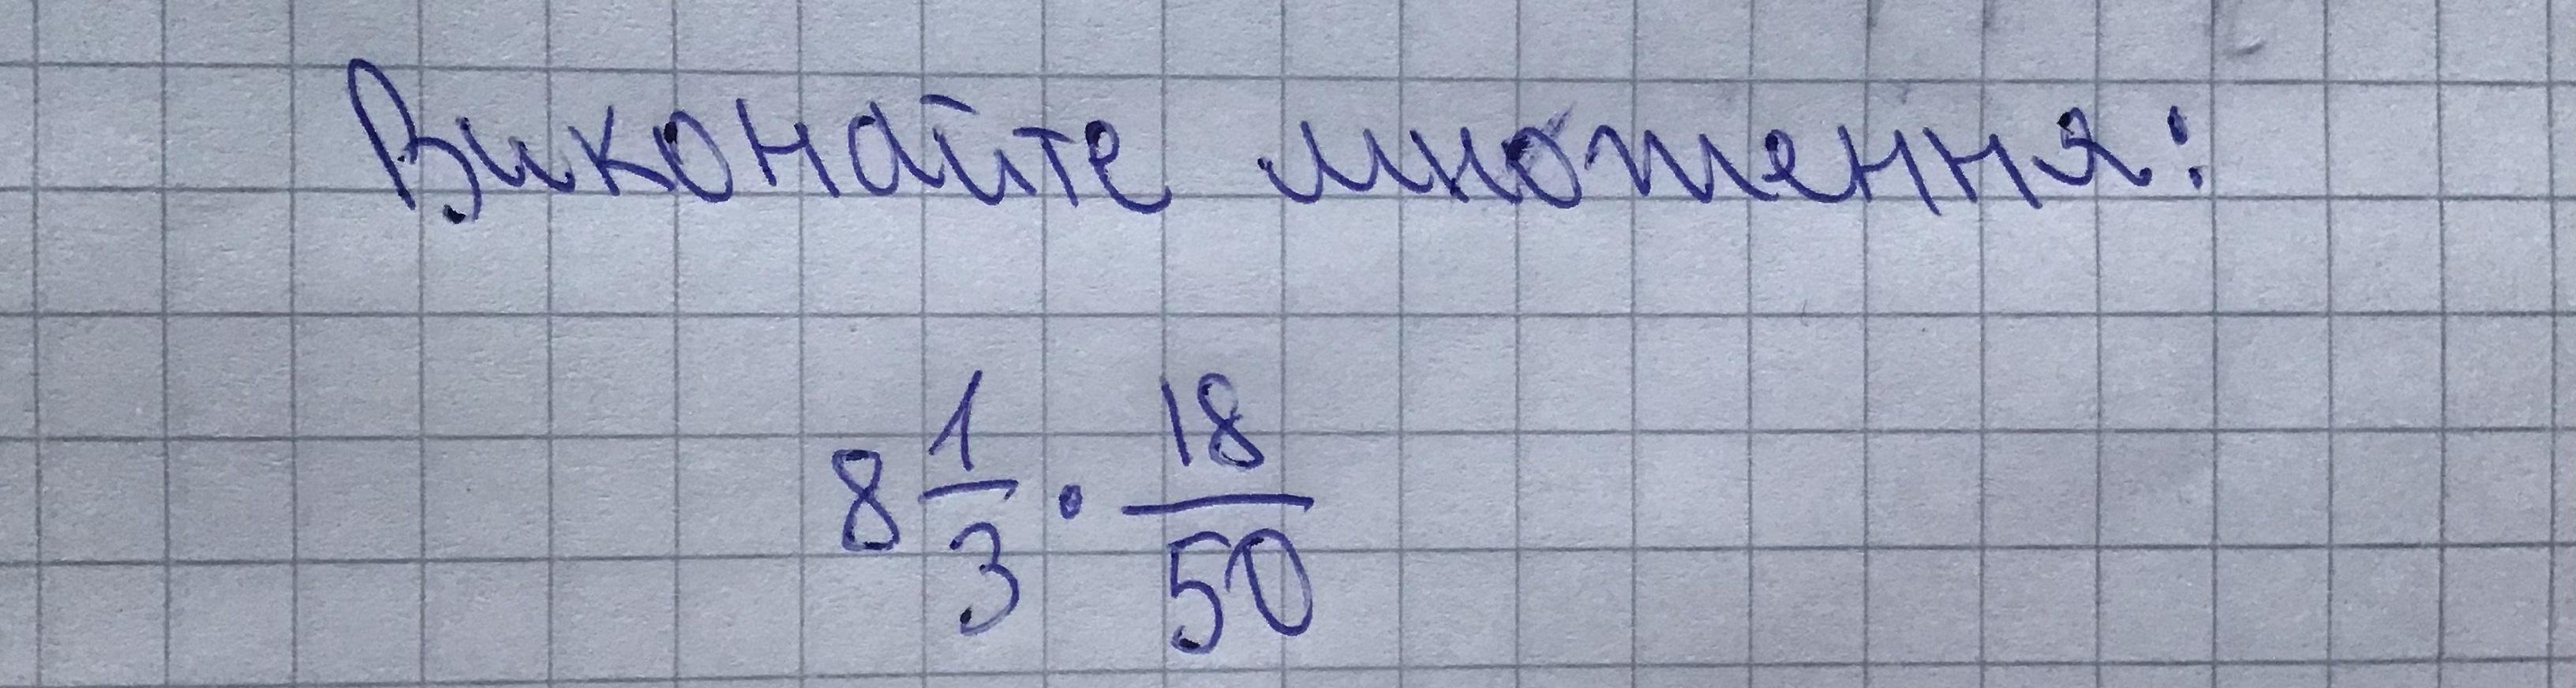 Виконайте множення:
8 1/3 · 18/50